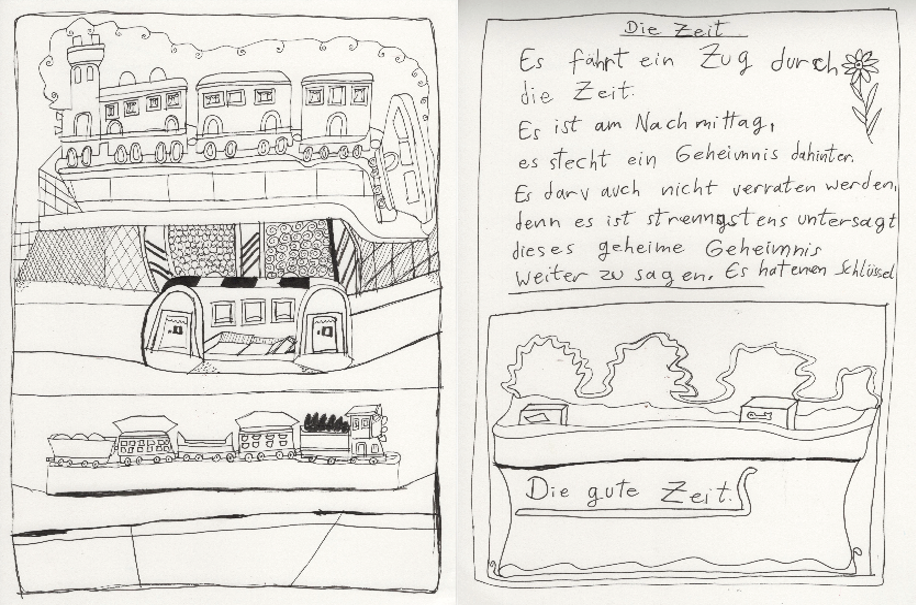 Die Zeit
Es fährt ein Zug durch
die Zeit.
Es ist am Nachmittag,
es stecht ein Geheimnis dahinter.
Es darv auch nicht verraten werden,
denn es ist strenngstens untersagt
dieses geheime Geheimnis
weiter zu sagen. Es hat einen Schlüssel
Die gute Zeit.